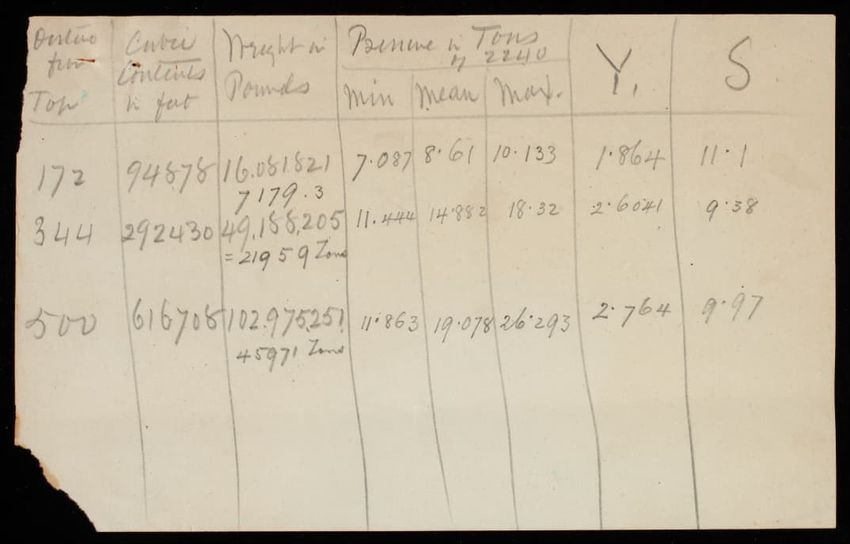 Distance Cubic Weight in Pressure in Tons Y, S
from Contents Pounds of 2240
Top in feet Min Mean Max.
172 94878 16.081.821 7.087 8.61 10.133 1.864 11.1
7179.3
344 292430 49,188,205 11.444 14.882 18.32 2.6041 9.38
= 21959 Tons
500 616708 102.975251 11.863 19.078 26.293 2.764 9.97
45971 Tons